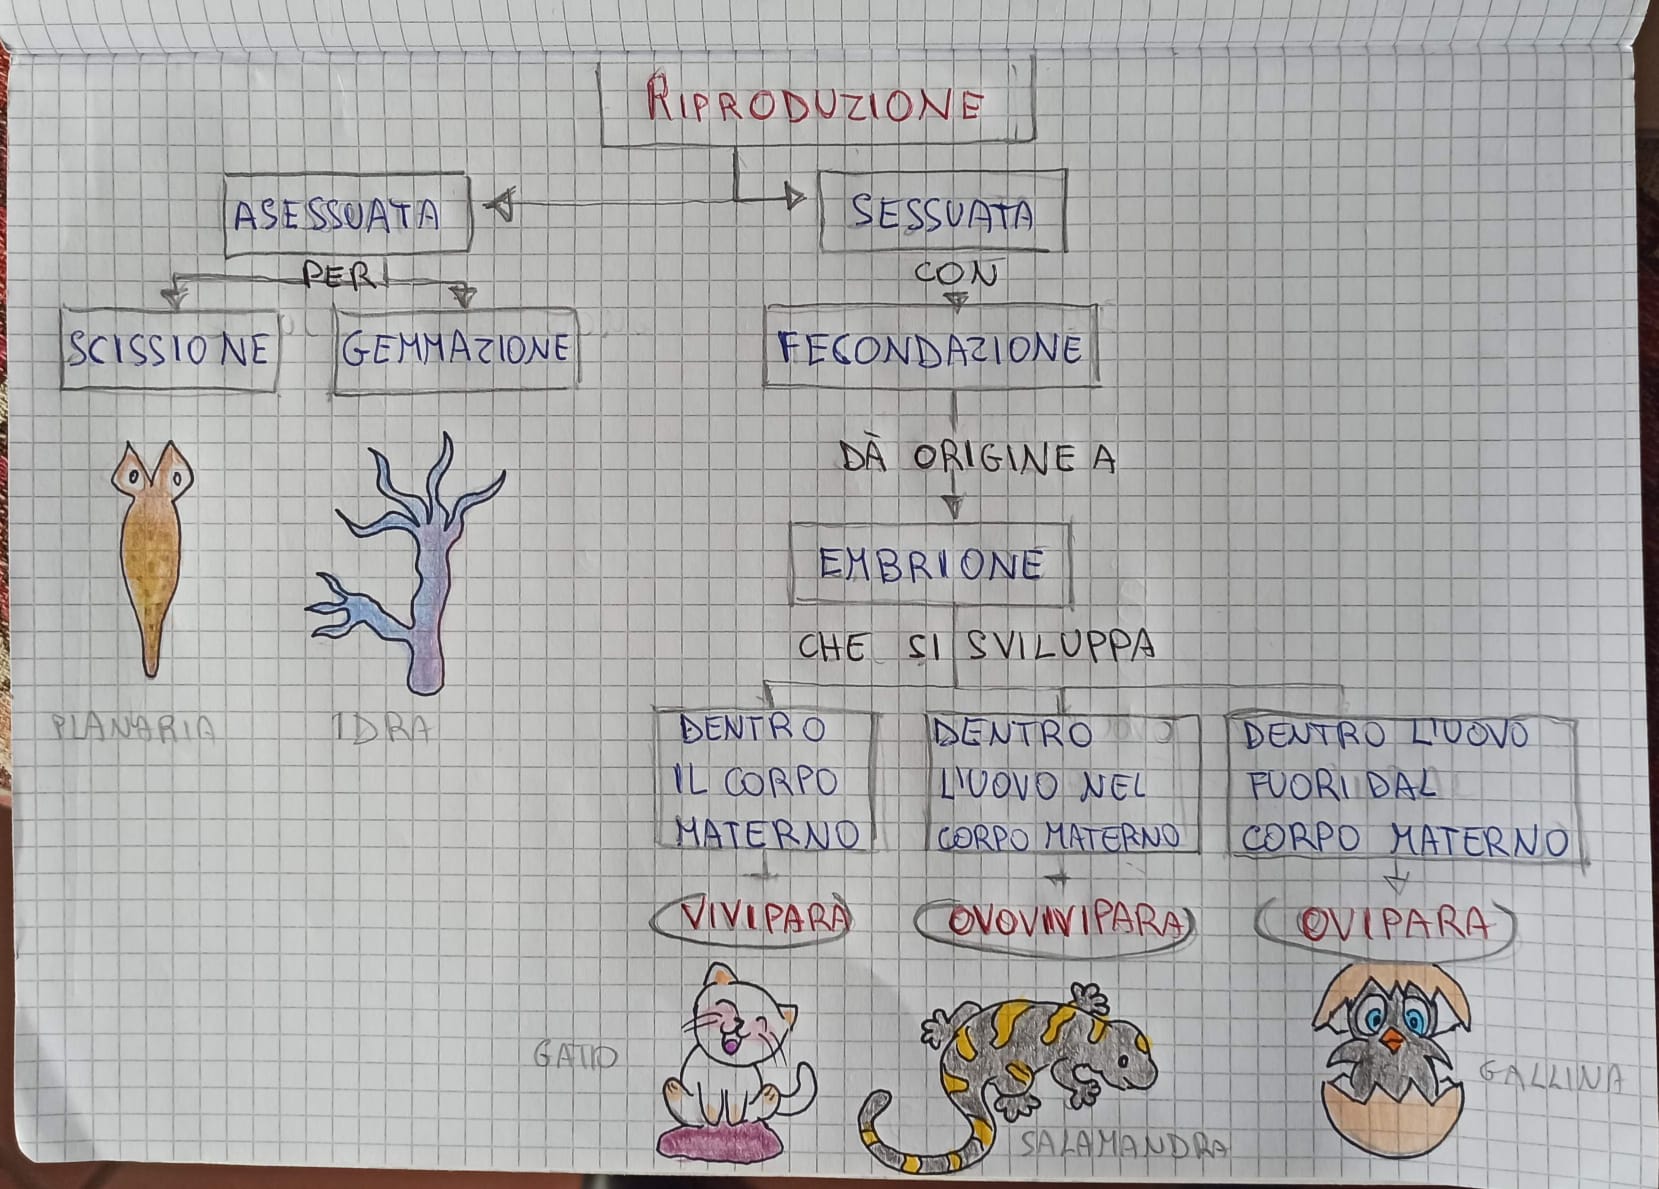 RIPRODUZIONE
ASESSUATA
SESSUATA
PER
CON
SCISSIONE
GEMMAZIONE
FECONDAZIONE
DÀ ORIGINE A
EMBRIONE
CHE SI SVILUPPA
PLANARIA
IDRA
DENTRO
IL CORPO
MATERNO
DENTRO
L'UOVO NEL
CORPO MATERNO
DENTRO L'UOVO
FUORI DAL
CORPO MATERNO
VIVIPARA
OVOVIVIPARA
OVIPARA
GATTO
SALAMANDRA
GALLINA